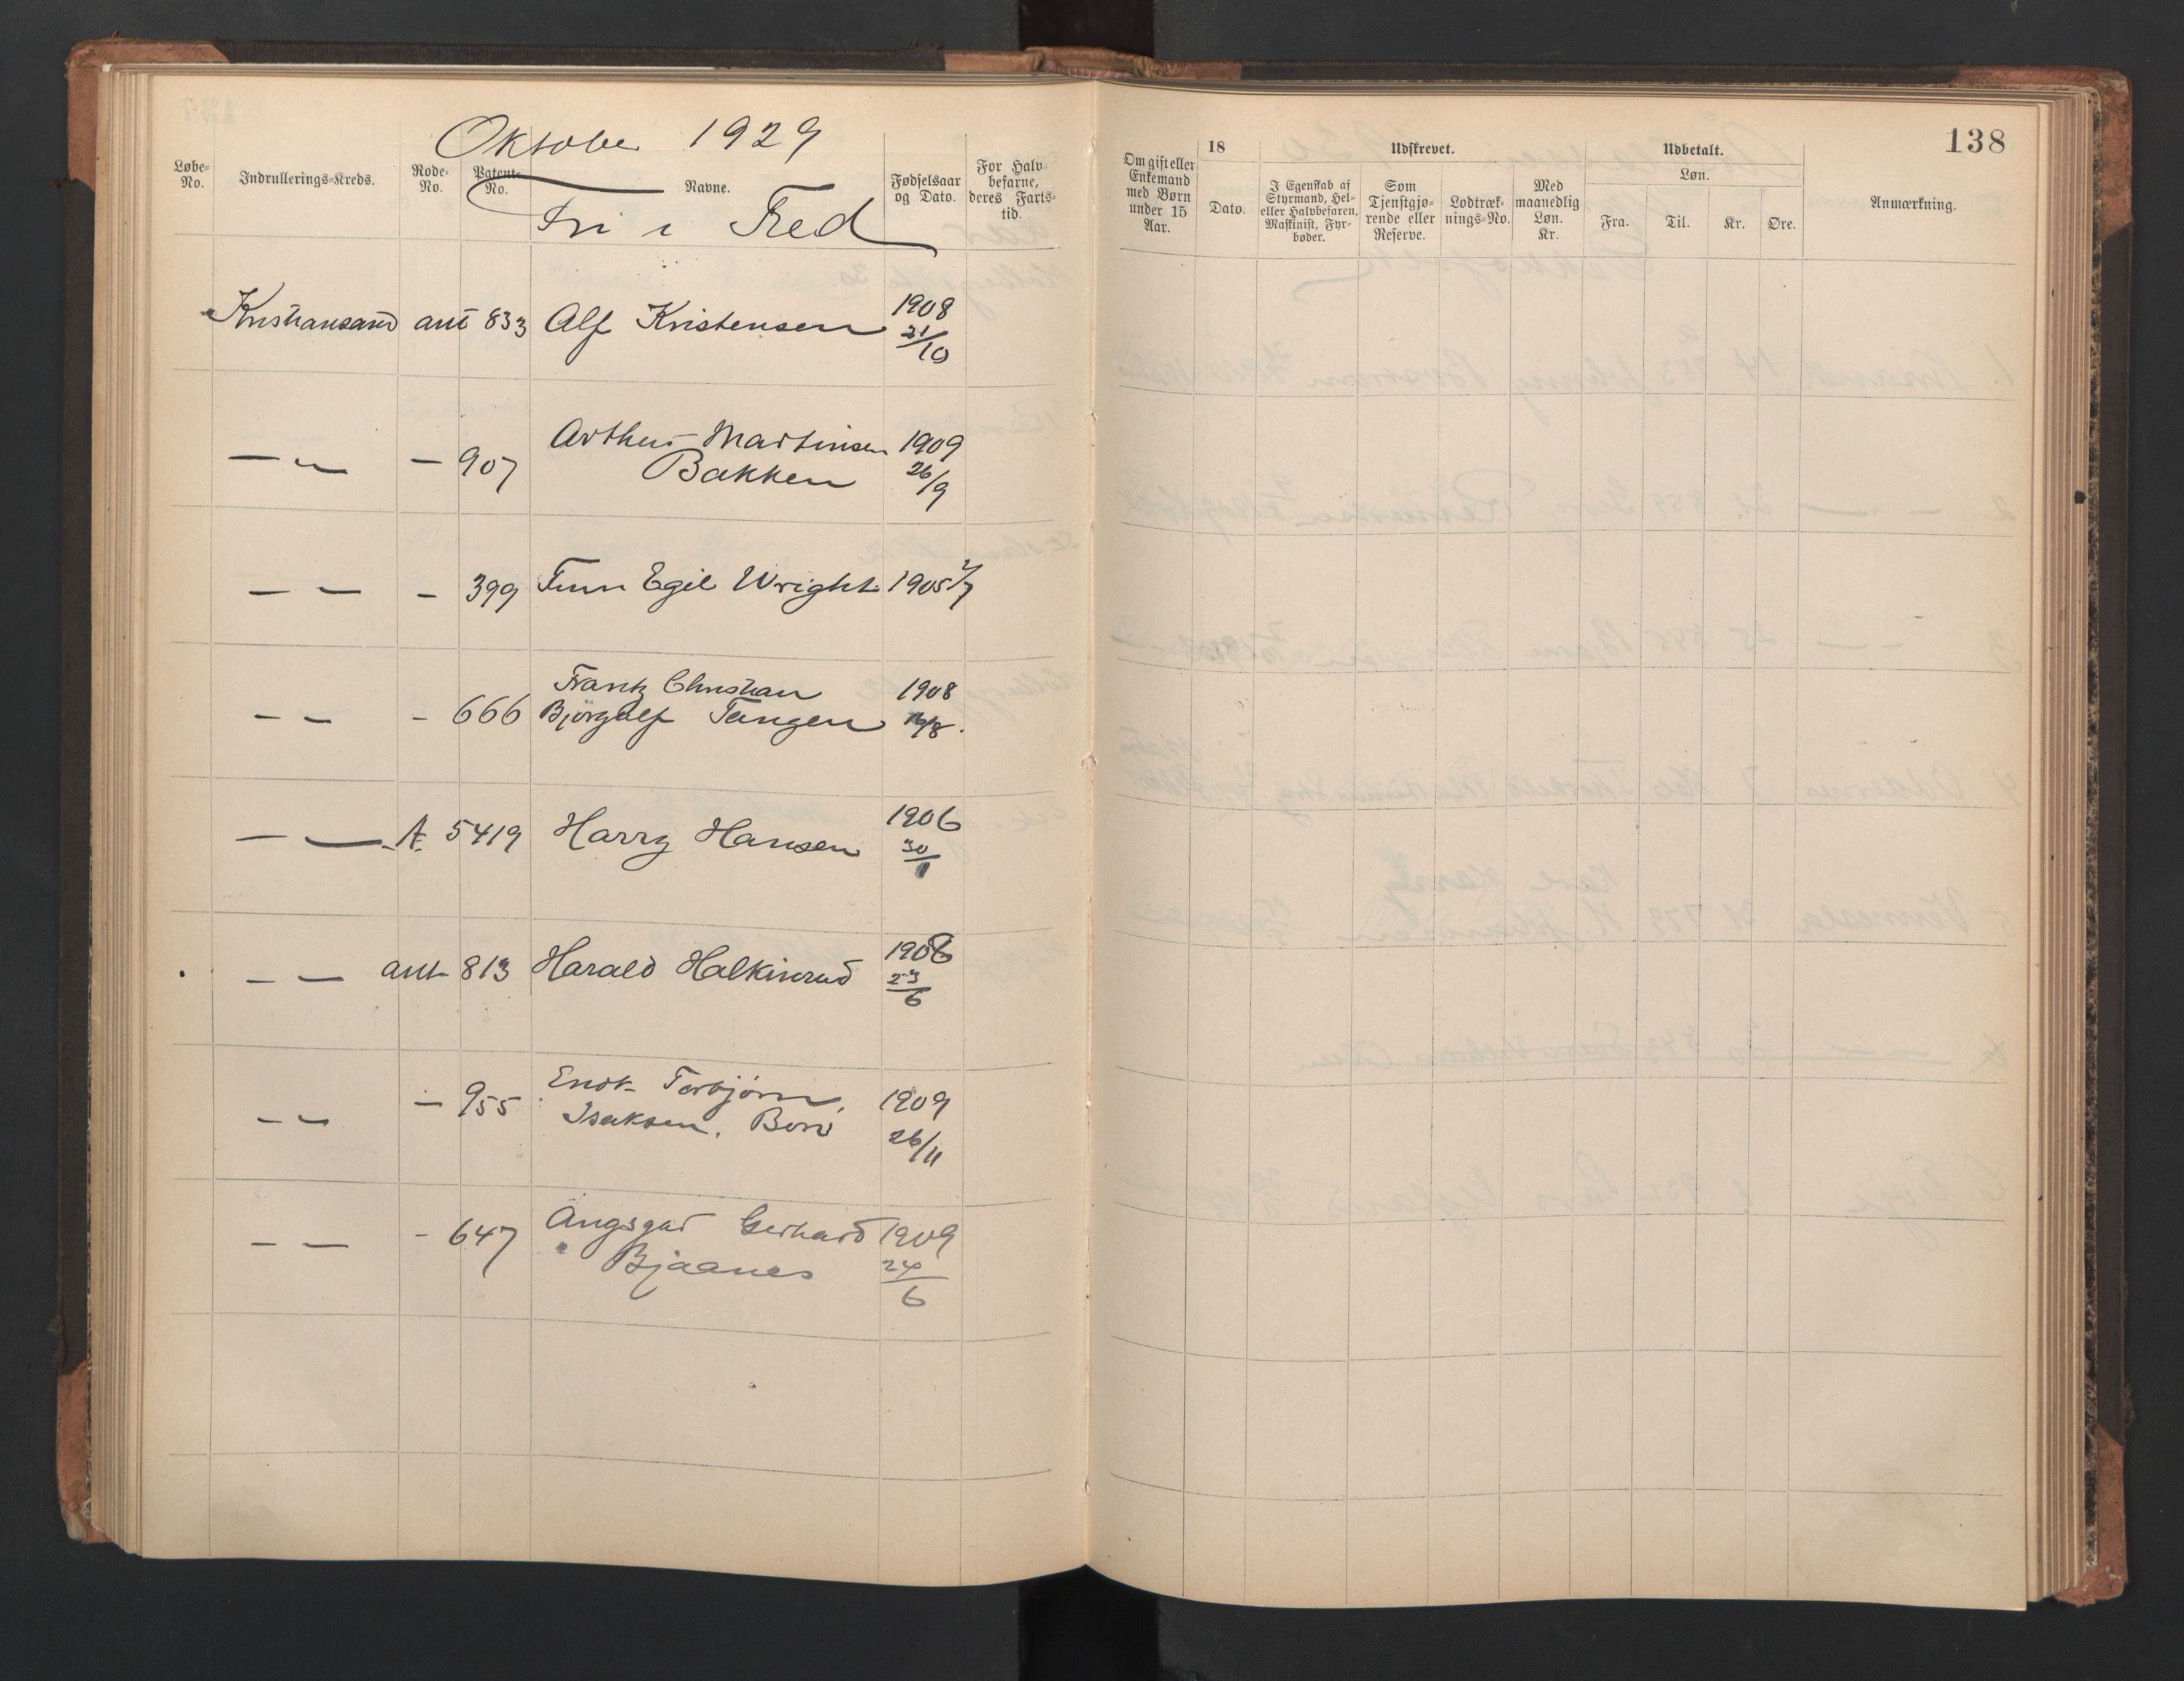 Oktober 1929
Fri i Fred
138
Løbe-No. Indrullerings-Kreds. Rode-No. Patent-No. Navne. Fødselsaar og Dato. For Halvbefarne, deres Fartstid.
Om gift eller Enkemand med Børn under 15 Aar. 18 Dato. Udskrevet. I Egenskab af Styrmand, Hel- eller Halvbefaren, Maskinist, Fyrbøder. Som Tjenstgjørende eller Reserve. Lodtræknings-No. Med maanedlig Løn. Kr. Udbetalt. Løn. Fra. Til. Kr. Øre. Anmærkning.
Kristiansand ant 833 Alf Kristensen 1908 21/10
— „ — — 907 Arthur Martinsen Bakken 1909 26/9
— — - 399 Finn Egil Wright 1905 2/7
— — - 666 Frantz Christian Bjørgulf Tangen 1908
— — A 5419 Harry Hansen 1906
— — ant 813 Harald 1908 23/6
— — — 955 Enok Torbjørn Isaksen. 1909 26/11
— — - 647 Angsgar Gerhard Bjaanes 1909 24/6